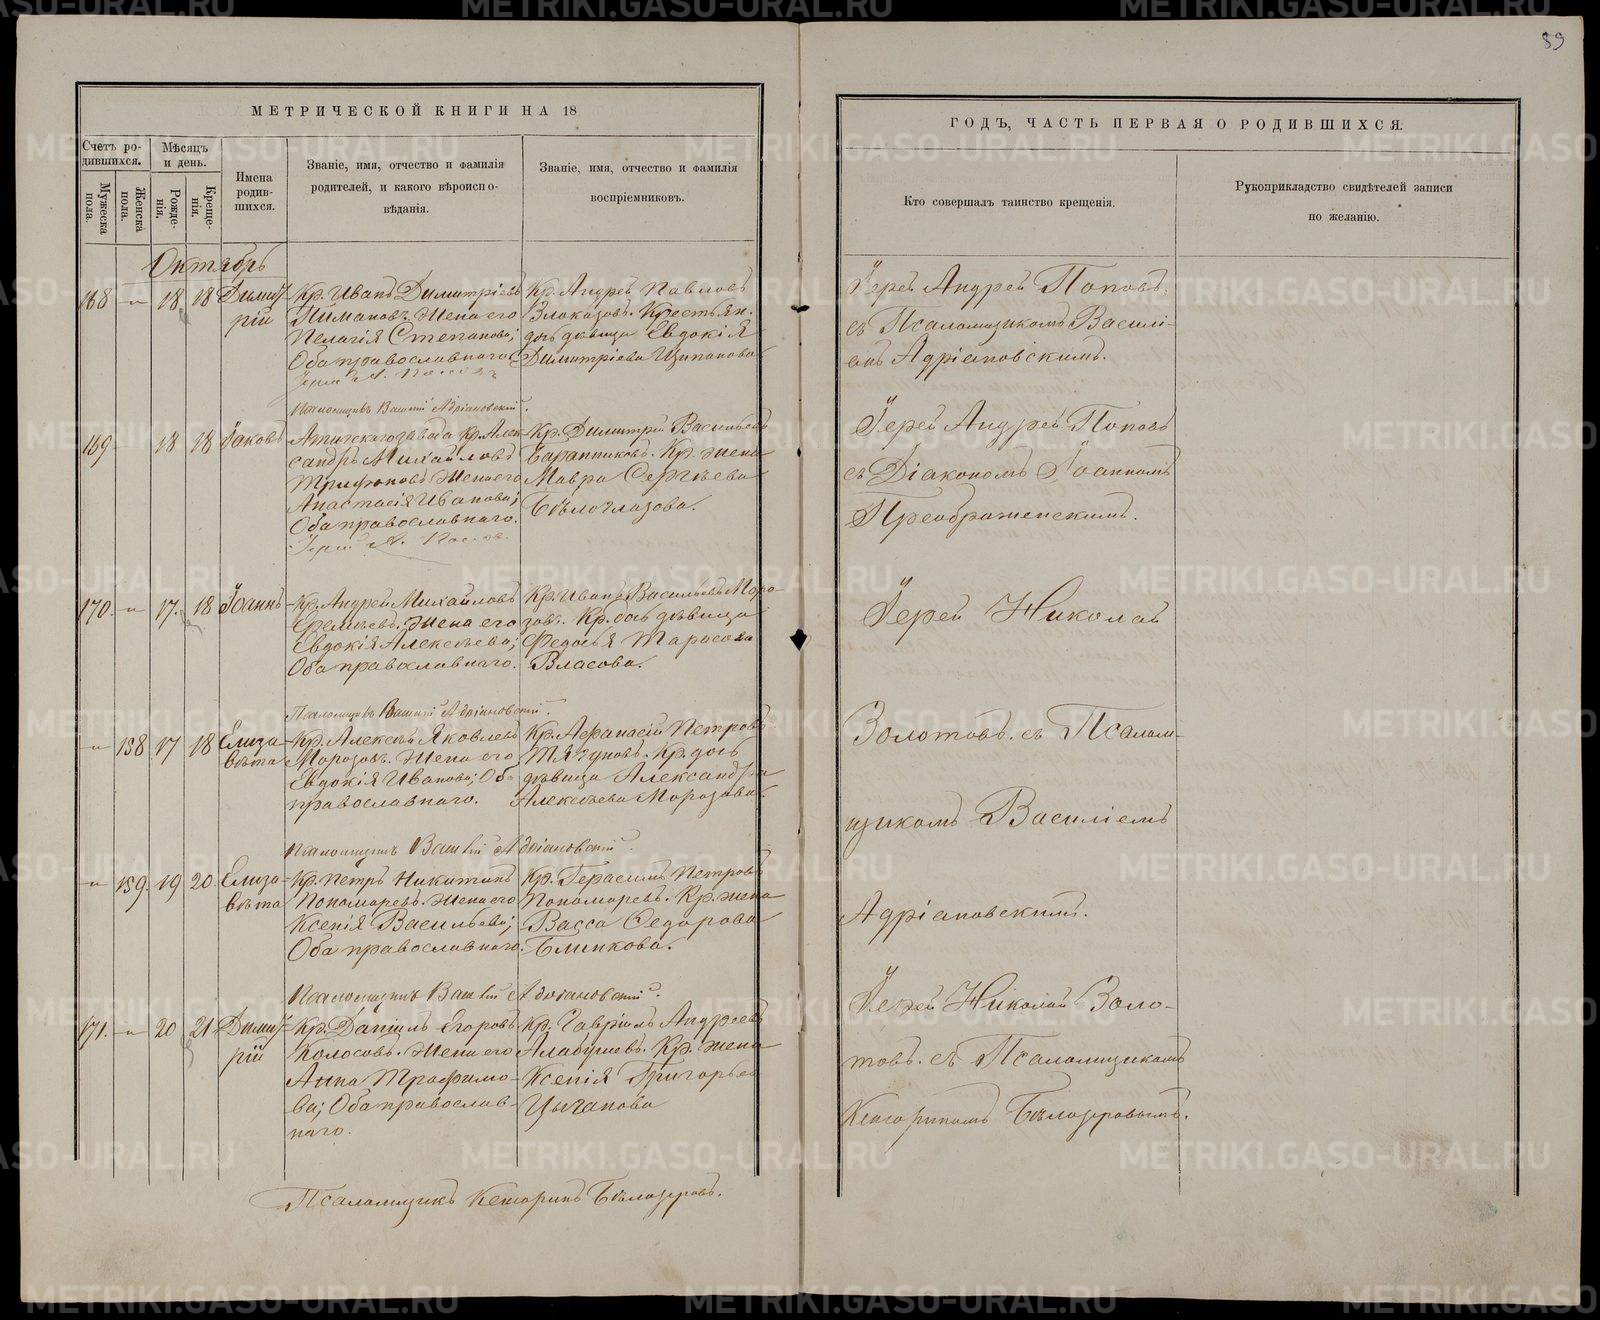 89
МЕТРИЧЕСКОЙ КНИГИ НА 18
ГОДЪ, ЧАСТЬ ПЕРВАЯ О РОДИВШИХСЯ.
Счетъ ро-
дившихся.
Мужеска
пола.
Женска
пола.
Мѣсяцъ
и день.
Рожде-
нія.
Креще-
нія.
Имена
родив-
шихся.
Званіе, имя, отчество и фамилія
родителей, и какого вѣроиспо-
вѣданія.
Званіе, имя, отчество и фамилія
воспріемниковъ.
Кто совершалъ таинство крещенія.
Рукоприкладство свидѣтелей записи
по желанію.
Октябрь
168 - 18 18 Димит-
рій
Кр. Иванъ Димитріевъ
Жена его
Пелагія Степанова;
Оба православнаго.
Кр. Андрей Павловъ
Злоказовъ. Крестьян.
дочь дѣвица Евдокія
Димитріева
Іерей Андрей Поповъ.
съ Псаломщикомъ Василі-
емъ Адріановскимъ.
Іерей А. Поповъ
Псаломщикъ Василій Адріановскій.
169 18 18 Іаковъ
завода Кр. Алек-
сандръ Михайловъ
Трифоновъ Жена его
Анастасія Иванова;
Оба православнаго.
Кр. Димитрій Васильевъ
Баранниковъ. Кр. жена
Мавра Сергѣева
Бѣлоглазова.
Іерей Андрей Поповъ
съ Діакономъ Іоанномъ
Преображенскимъ.
Іерей А. Поповъ.
170. - 17. 18 Іоаннъ
Кр. Андрей Михайловъ
Жена его
Евдокія Алексѣева;
Оба православнаго.
Кр. Иванъ Васильевъ Моро-
зовъ. Кр. дочь дѣвица
Федосья Тарасова
Власова.
Іерей Николай
Псаломщикъ Василій Адріановскій.
- 158 17 18 Елиза-
вѣта
Кр. Алексѣй Яковлевъ
Морозовъ. Жена его
Евдокія Иванова; Оба
православнаго.
Кр. Афанасій Петровъ
Тягуновъ. Кр. дочь
дѣвица Александра
Алексѣева Морозова
Золотовъ. съ Псалом-
щикомъ Василіемъ
Псаломщикъ Василій Адріановскій.
- 159. 19 20. Елиза-
вѣта
Кр. Петръ Никитинъ
Пономаревъ. Жена его
Ксенія Васильева;
Оба православнаго.
Кр. Герасимъ Петровъ
Пономаревъ. Кр. жена
Васса Федорова
Блинкова.
Адріановскимъ.
Псаломщикъ Василій Адріановскій.
171. - 20 21 Димит-
рій
Кр. Даніилъ Егоровъ
Колосовъ. Жена его
Анна Трофимо-
ва; Оба православ-
наго.
Кр. Гавріилъ Андреевъ
Алабушевъ. Кр. жена
Ксенія Григорьев
Цыганова
Іерей Николай Золо-
товъ. съ Псаломщикомъ
Кенсориномъ Бѣлозеровымъ.
Псаломщикъ Кенсоринъ Бѣлозеровъ.
METRIKI.GASO-URAL.RU